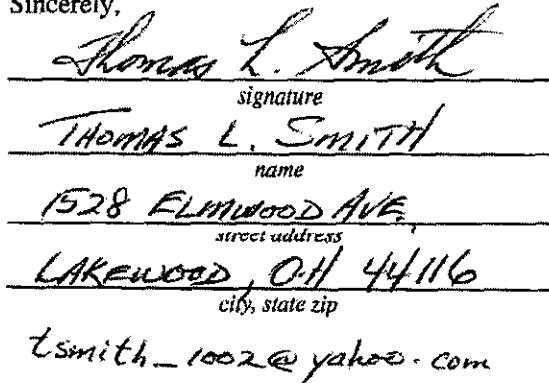 Sincerely,
Thomas L. Smith
signature
THOMAS L. SMITH
name
1528 ELMWOOD AVE.,
street address
LAKEWOOD, OH 44116
city, state zip
tsmith_1002@yahoo.com